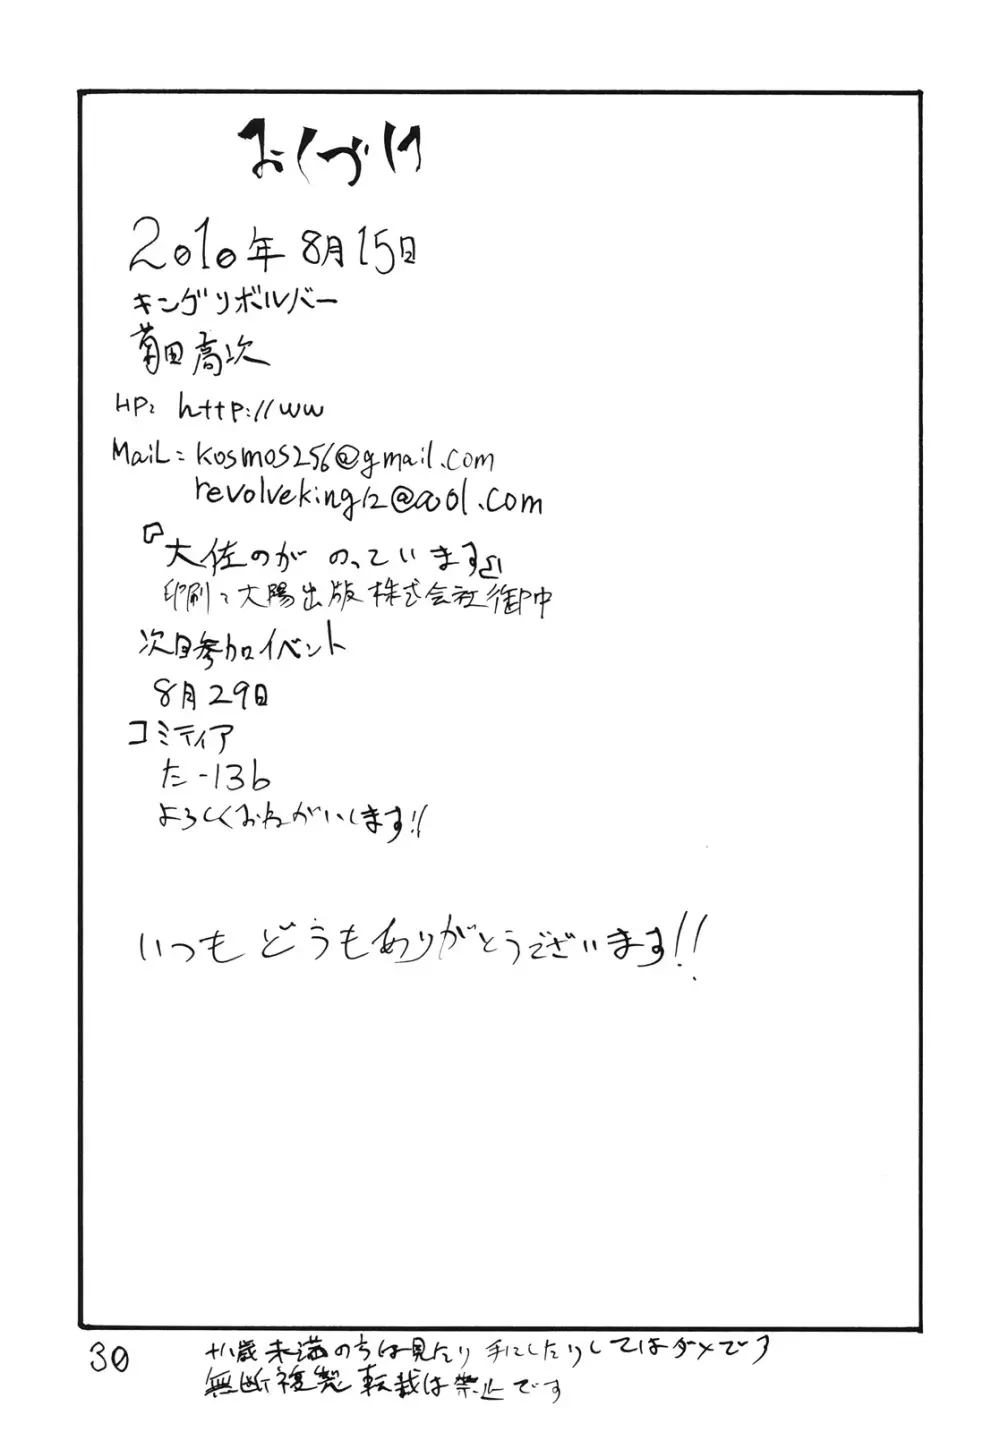 おくづけ
2010年8月15日
キングリボルバー
菊田高次
HP: http://ww
MaiL: kosmos256@gmail.com
revolveking12@aol.com
『大佐のがのっています』
印刷:大陽出版株式会社御中
次回参加イベント
8月29日
コミティア
た-13b
よろしくおねがいします!!
いつもどうもありがとうございます!!
30
十八歳未満のちは見たり手にしたりしてはダメです
無断複製転載は禁止です